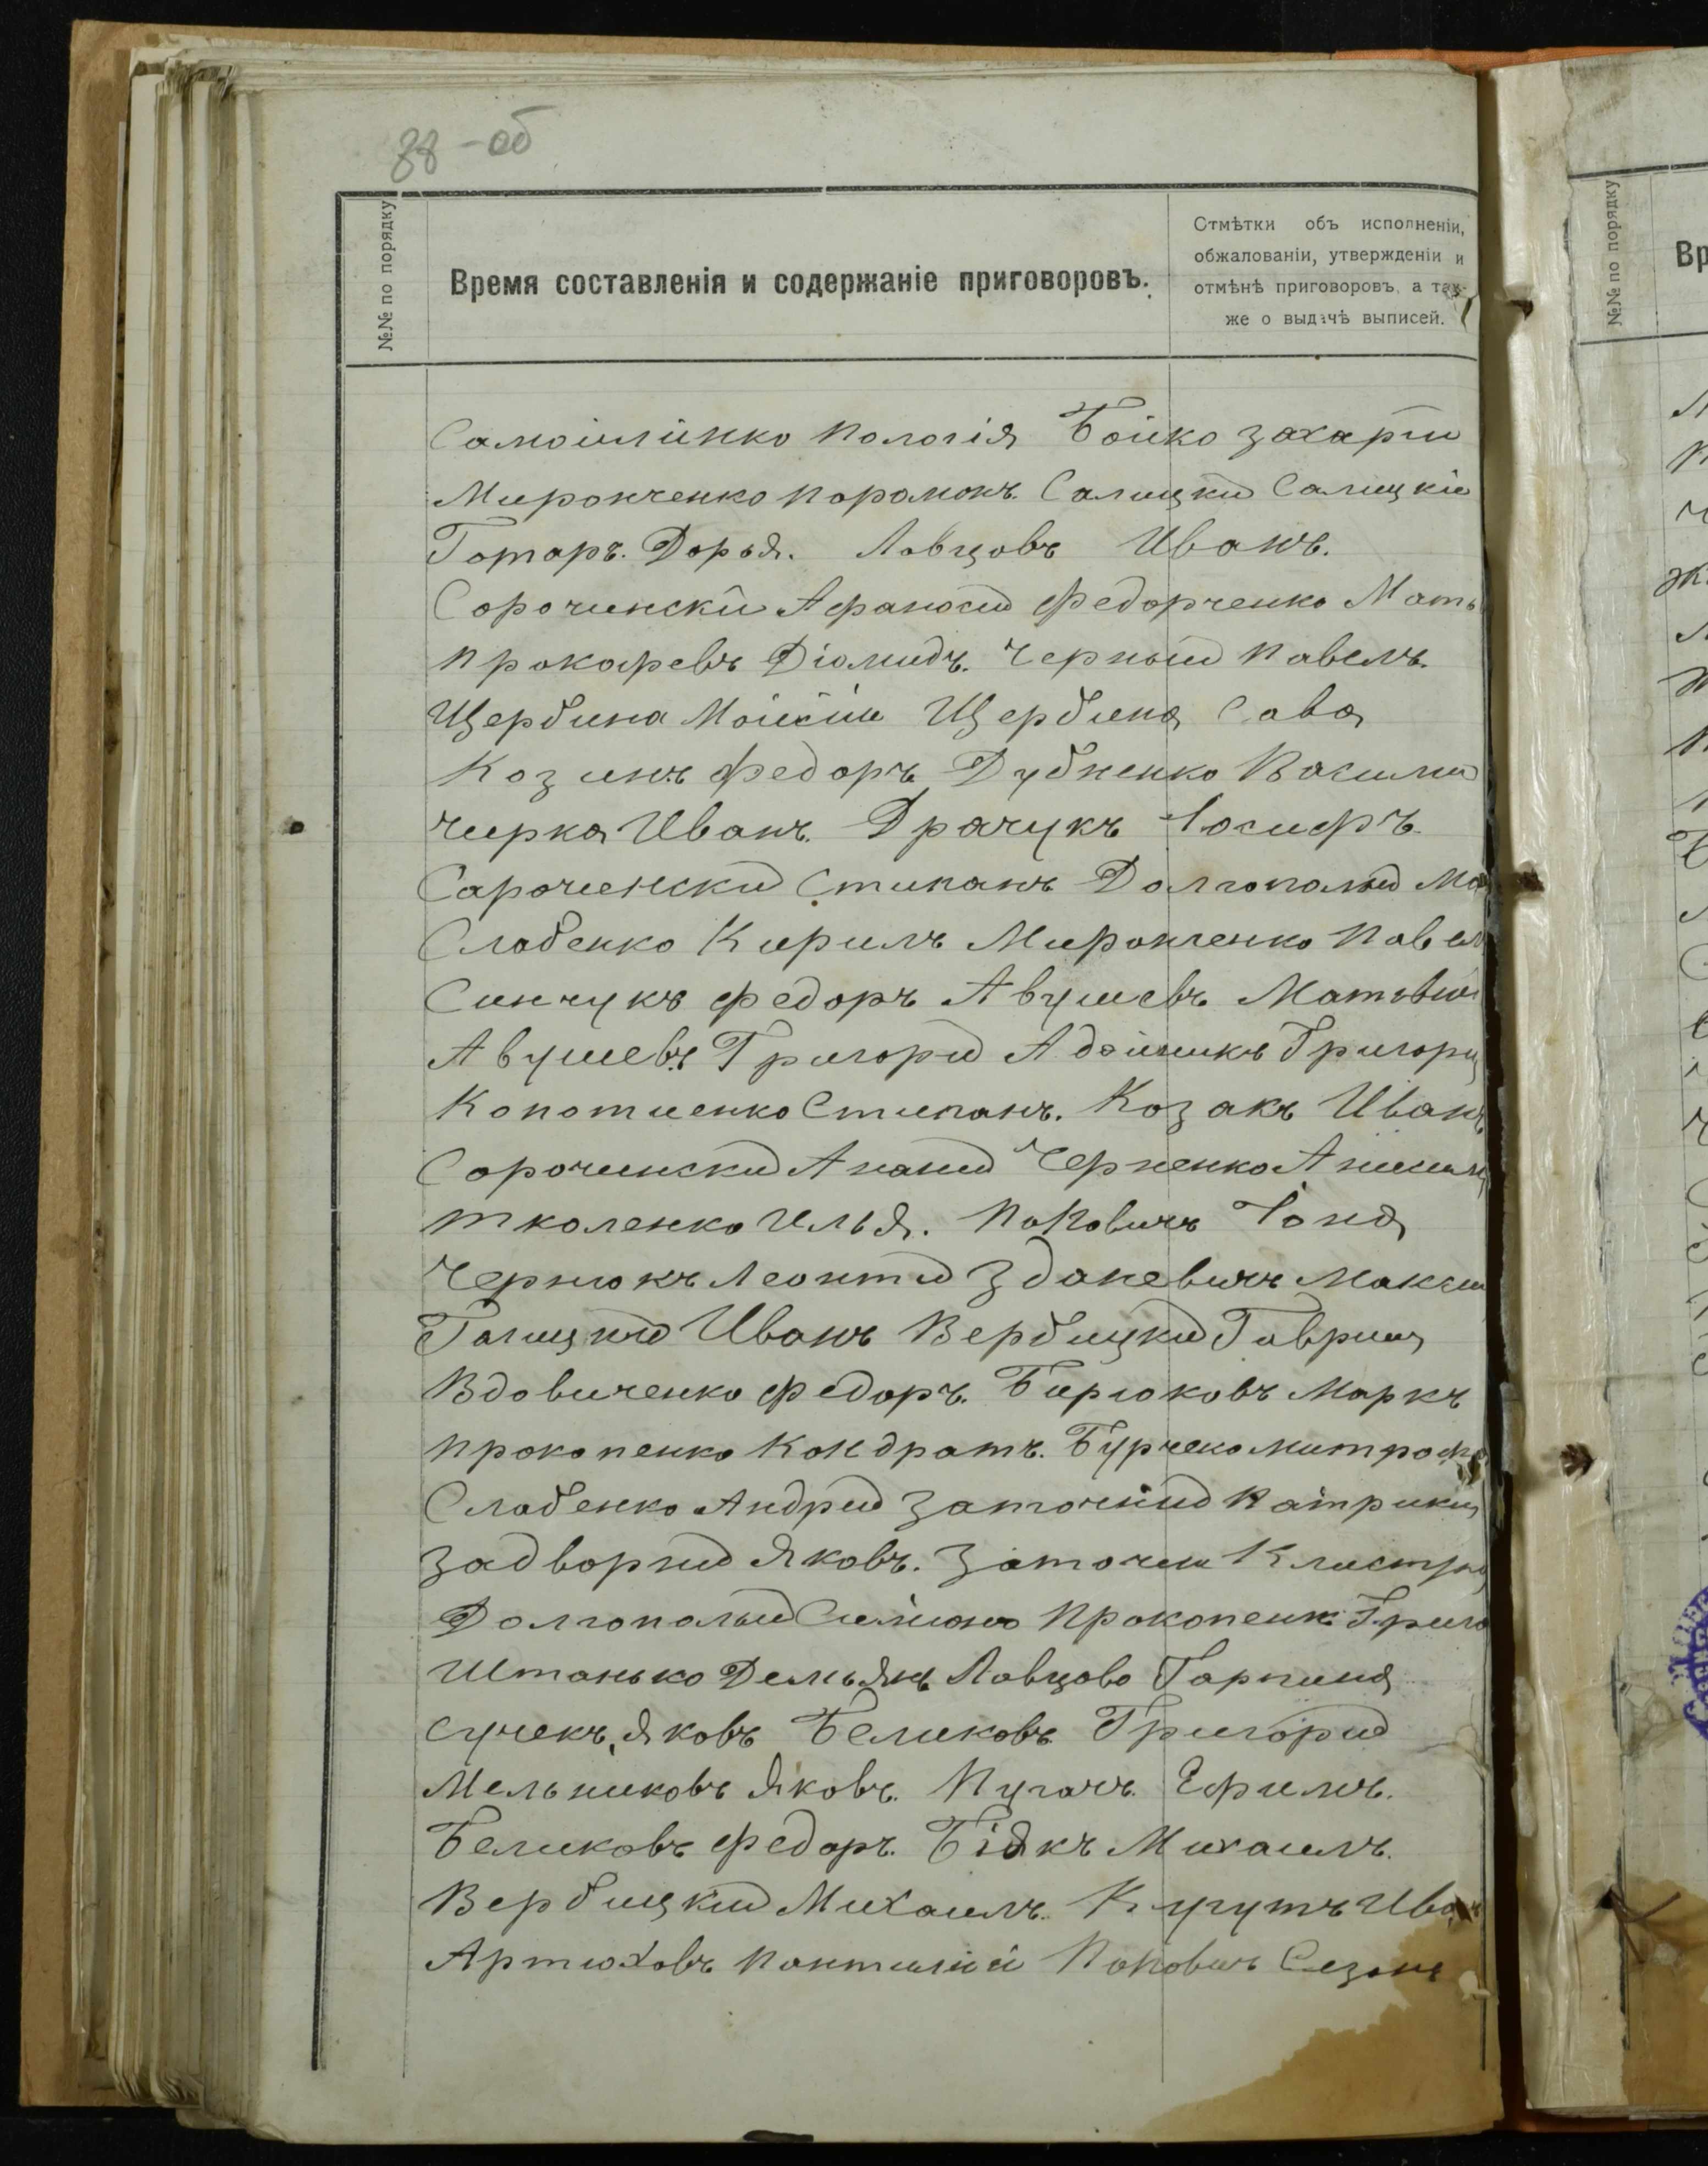 88-об
№№ по порядку
Время составленія и содержаніе приговоровъ.
Отмѣтки объ исполненіи,
обжалованіи, утвержденіи и
отмѣнѣ приговоровъ, а так-
же о выдачѣ выписей.
Самоіиленко Пологія Бойко Захарій
Миронченко Парамонъ. Салицкій Салицкіи
Гопаръ. Дарья. Ловцовъ Иванъ.
Сорочинскій Афанасій Федорченко Матв
Прокафевъ Діомидъ. Черный Павелъ.
Щербина Моисій Щербина Сава
Козинъ Федоръ Дубненко Василий
чирка Иванъ. Драчукъ Іосифъ.
Сарочинский Стипанъ Долгополый Ма
Слабенко Кирилъ Миронченко Павел
Синчукъ Федоръ Авушевъ Матвей
Авушевъ Григорій Адейникъ Григорій
Копотиенко Стипанъ. Козакъ Иванъ
Сорочинский Ананий Черненко
ткаленко Илья. Поповичъ Іона
Чернюкъ Леонтій Здоневичъ Макси
Галицкий Иванъ Вербицкий Гаврил
Вдовиченко Федоръ. Бирюковъ Маркъ
Прокопенко Кондратъ. Бурчеко митрофа
Слабенко Андрей Заточний Патрикий
Задворний Яковъ. Заточни
Долгополый Симионъ Прокопенк Григо
Штанько Демьянъ Ловцова Гарпина
Сучекъ, Яковъ Беликовъ Григорій
Мельниковъ Яковъ. Пугачъ. Ефимъ.
Беликовъ Федоръ. Біякъ Михаилъ.
Вербицкий Михаилъ. Кугутъ Иван
Артюховъ Пантилий Поповичъ Сезонъ
№№ по порядку
Вр